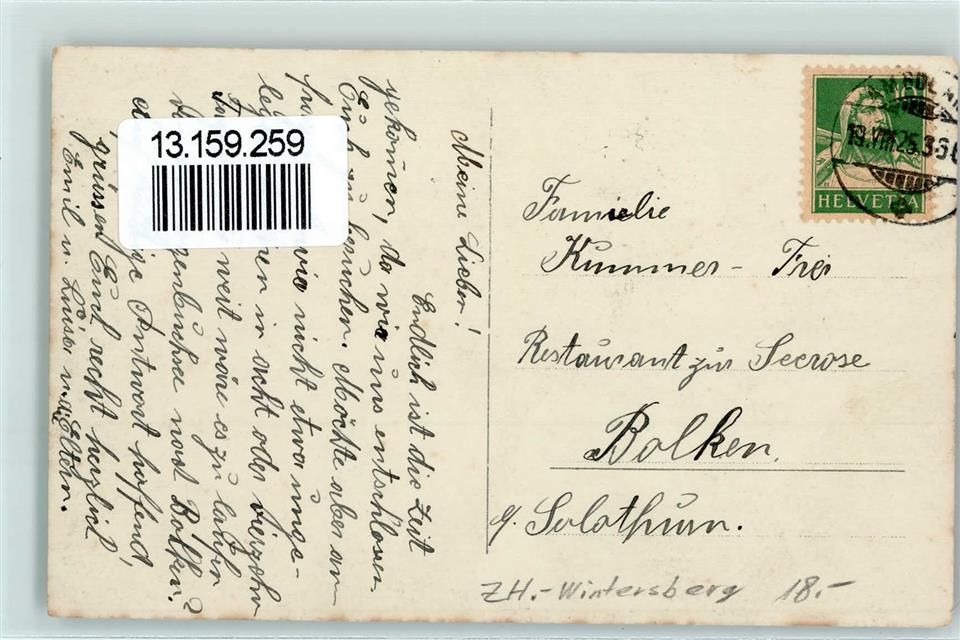 Meine Lieben!
Endlich ist die Zeit
gekommen, da wir uns entschlossen
Euch zu besuchen. Möchte aber an
wir nicht etwa unge-
in acht oder vierzehn
weit wäre es zu laufen
nach Bolken?
Antwort hoffend,
grüssen Euch recht herzlich
Emil u. Luise u. Eltern.
13.159.259
HELVETIA
19.VIII.25.
Familie
Kummer - Frei
Restaurant zur Seerose
Bolken.
b. Solothurn.
ZH.-Wintersberg 18.-